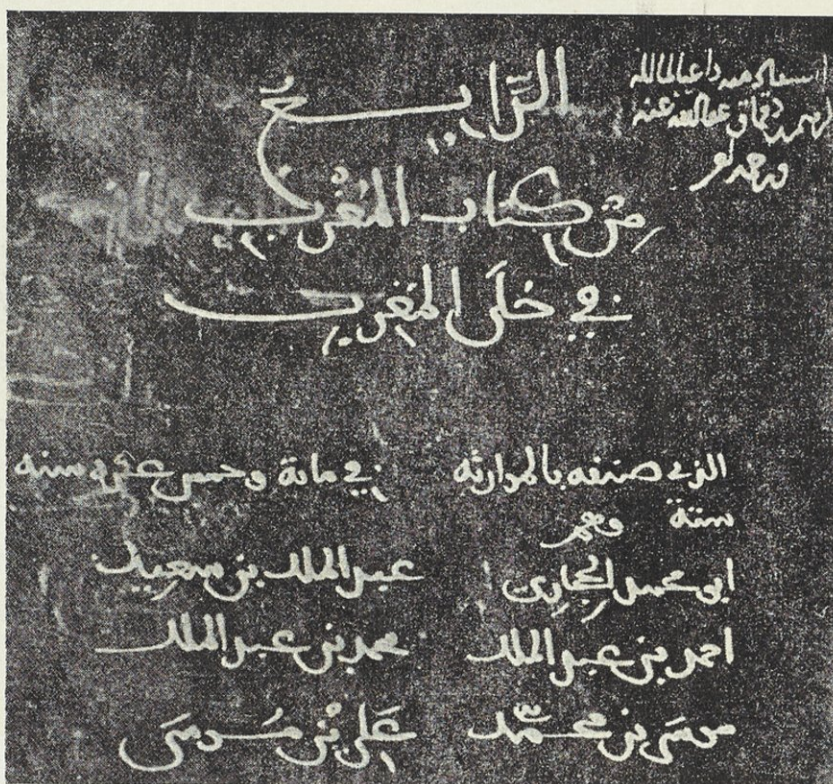 منه داعيا لمالكه
دقماق عفا الله عنه
الرَّابعُ
مِنْ كتاب المُغْرب
في حُلَى المَغرب
الذي صنفه بالموارثه في مائة وخمس عشرة سنه
ستة وهم
ابو محمد الحِجَارِي عبد الملك بن سعيد
احمد بن عبد الملك محمد بن عبد الملك
موسَى بن محمّد عَلِي بْن مُوسَى